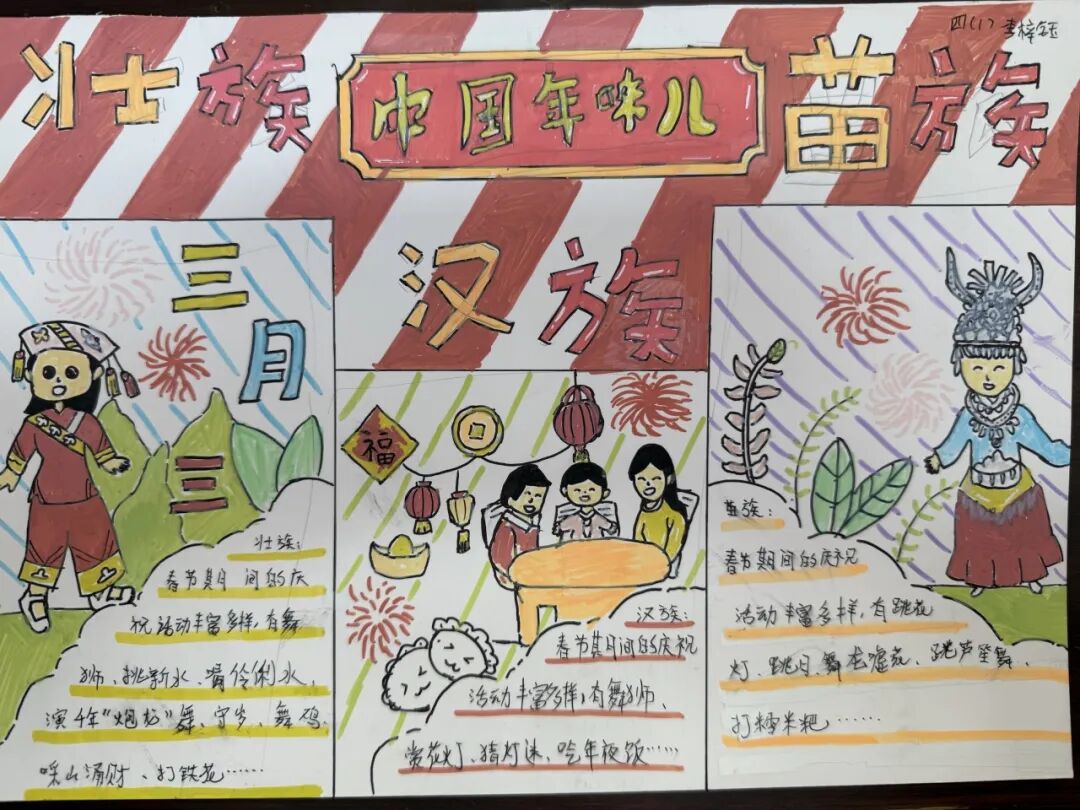 四(1) 李梓钰
壮族
中国年味儿
苗族
三月三
汉族
福
壮族:
春节期间的庆
祝活动丰富多样,有舞
狮、挑新水、伶俐水、
演牛年“炮龙”舞、守岁、舞鸡、
采山涌财、打铁花……
汉族:
春节期间的庆祝
活动丰富多样,有舞狮、
赏花灯、猜灯迷、吃年夜饭……
苗族:
春节期间的庆祝
活动丰富多样,有跳花
灯、跳月、舞龙嘘花、跳芦笙舞、
打糯米粑……